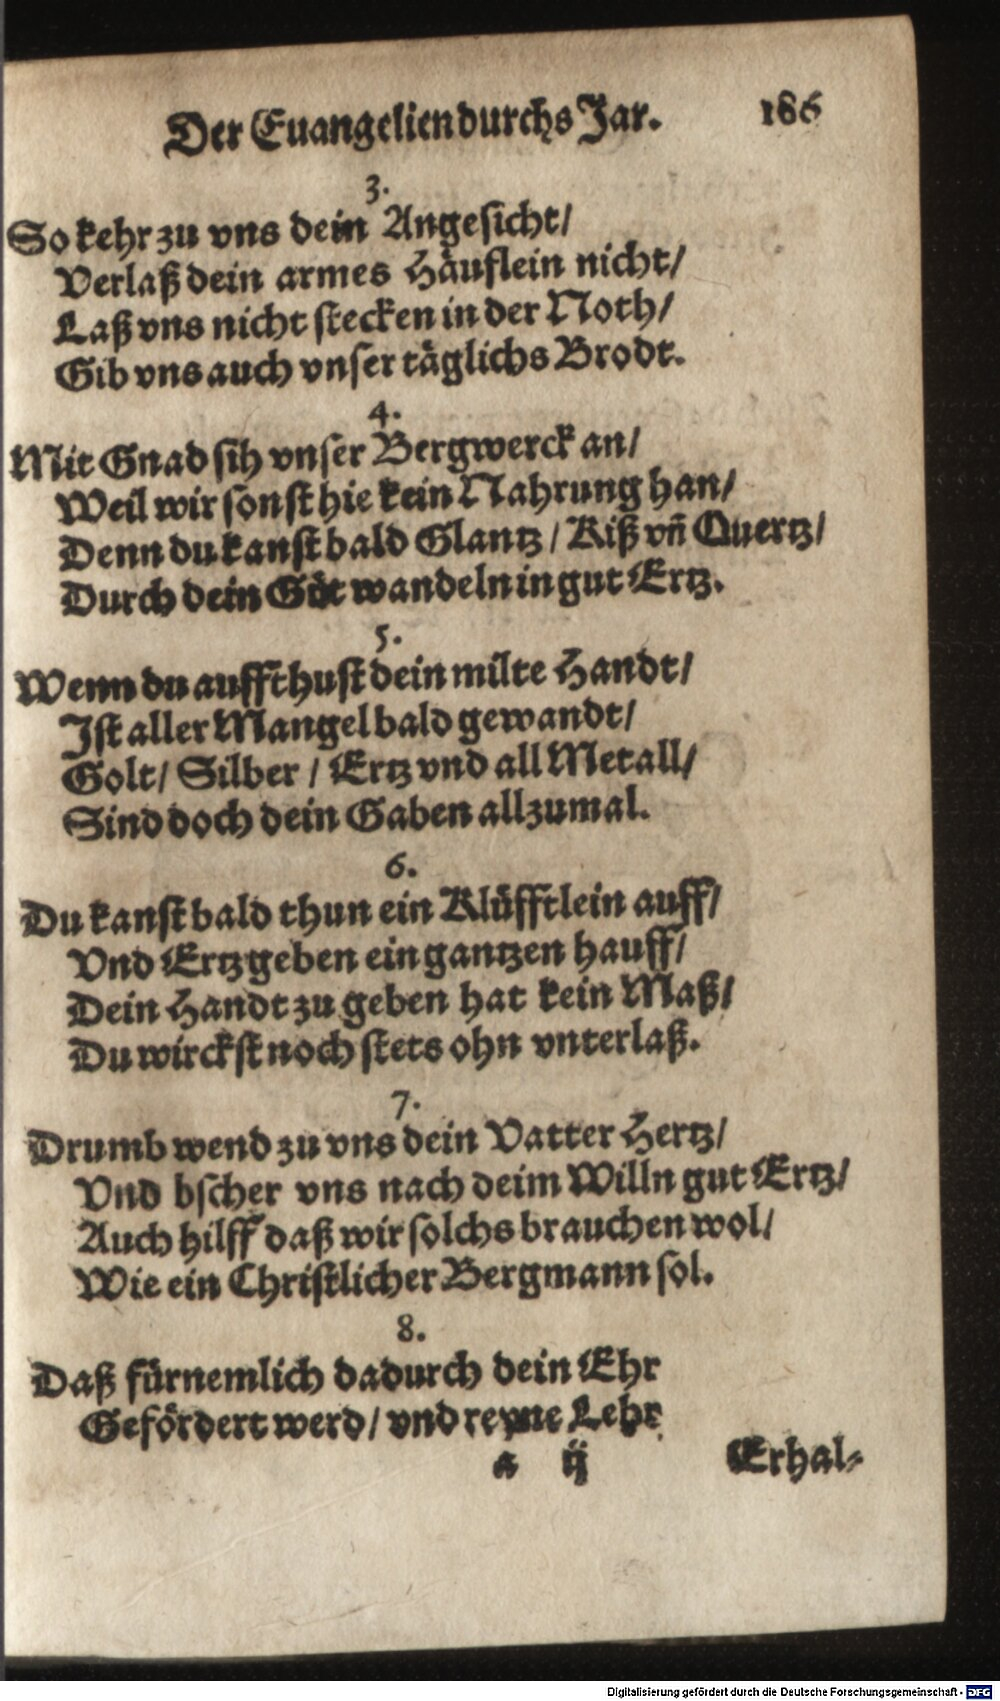 Der Euangelien durchs Jar. 186
3.
So kehr zu vns dein Angesicht/
Verlaß dein armes Häuflein nicht/
Laß vns nicht stecken in der Noth/
Gib vns auch vnser täglichs Brodt.
4.
Mit Gnad sih vnser Bergwerck an/
Weil wir sonst hie kein Nahrung han/
Denn du kanst bald Glantz/ Kiß vn̄ Quertz/
Durch dein Güt wandeln in gut Ertz.
5.
Wenn du auffthust dein milte Handt/
Ist aller Mangel bald gewandt/
Golt/ Silber/ Ertz vnd all Metall/
Sind doch dein Gaben allzumal.
6.
Du kanst bald thun ein Klüfftlein auff/
Vnd Ertz geben ein gantzen hauff/
Dein Handt zu geben hat kein Maß/
Du wirckst noch stets ohn vnterlaß.
7.
Drumb wend zu vns dein Vatter Hertz/
Vnd bscher vns nach deim Willn gut Ertz/
Auch hilff daß wir solchs brauchen wol/
Wie ein Christlicher Bergmann sol.
8.
Daß fürnemlich dadurch dein Ehr
Gefördert werd/ vnd reyne Lehr
a ij Erhal-
Digitalisierung gefördert durch die Deutsche Forschungsgemeinschaft - DFG